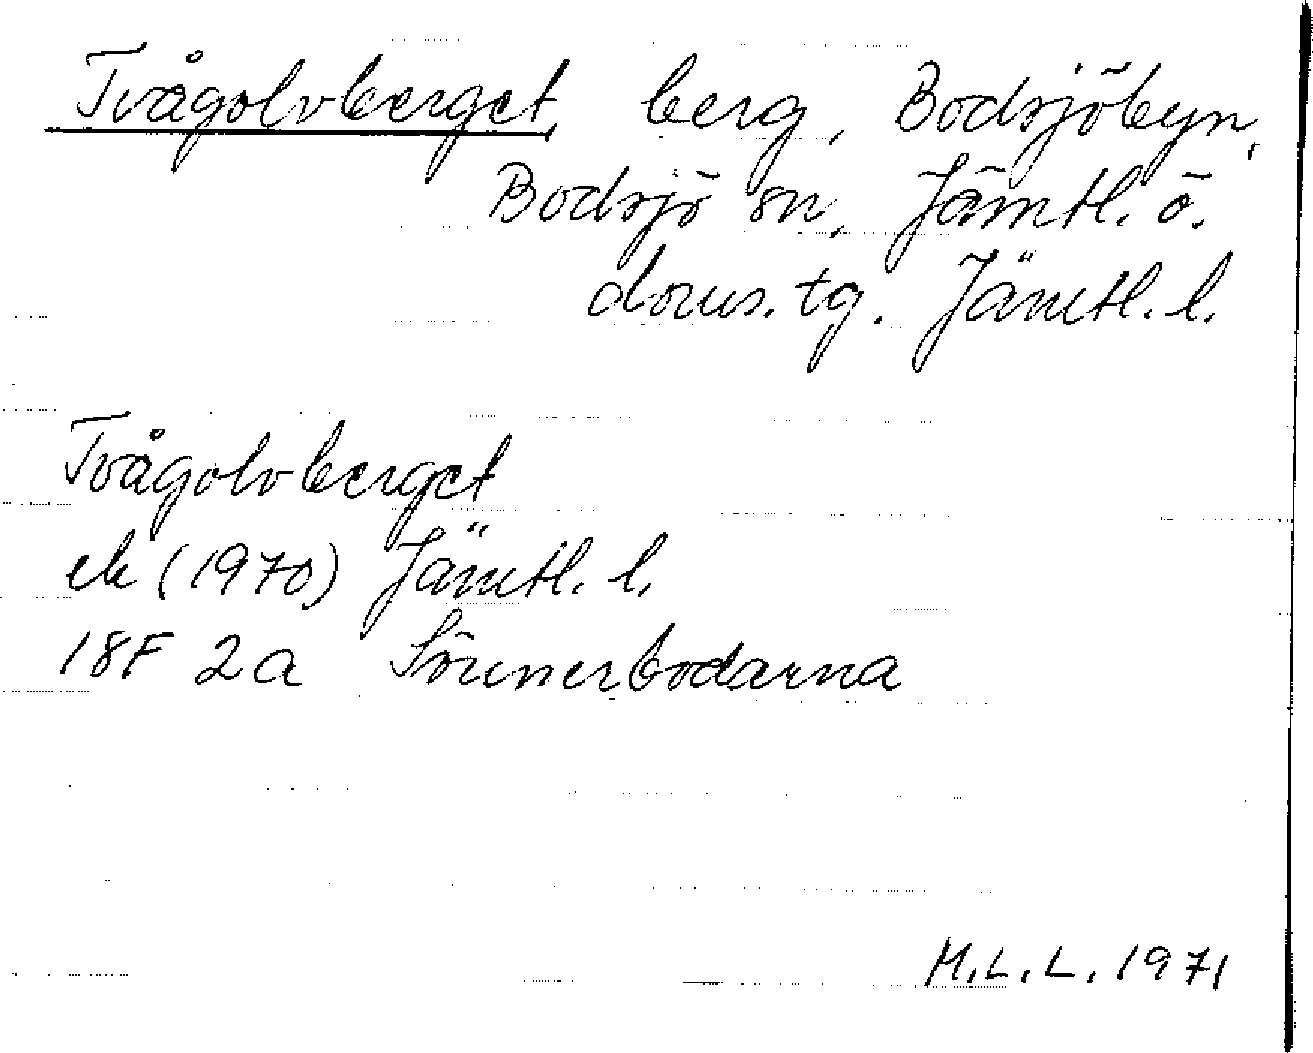 Tvågolvberget, berg, Bodsjöbyn,
Bodsjö sn, Jämtl. ö.
doms. tg. Jämtl. l.
Tvågolvberget
ek (1970) Jämtl. l.
18F 2a Sörmerbodarna
M.L.L. 1971